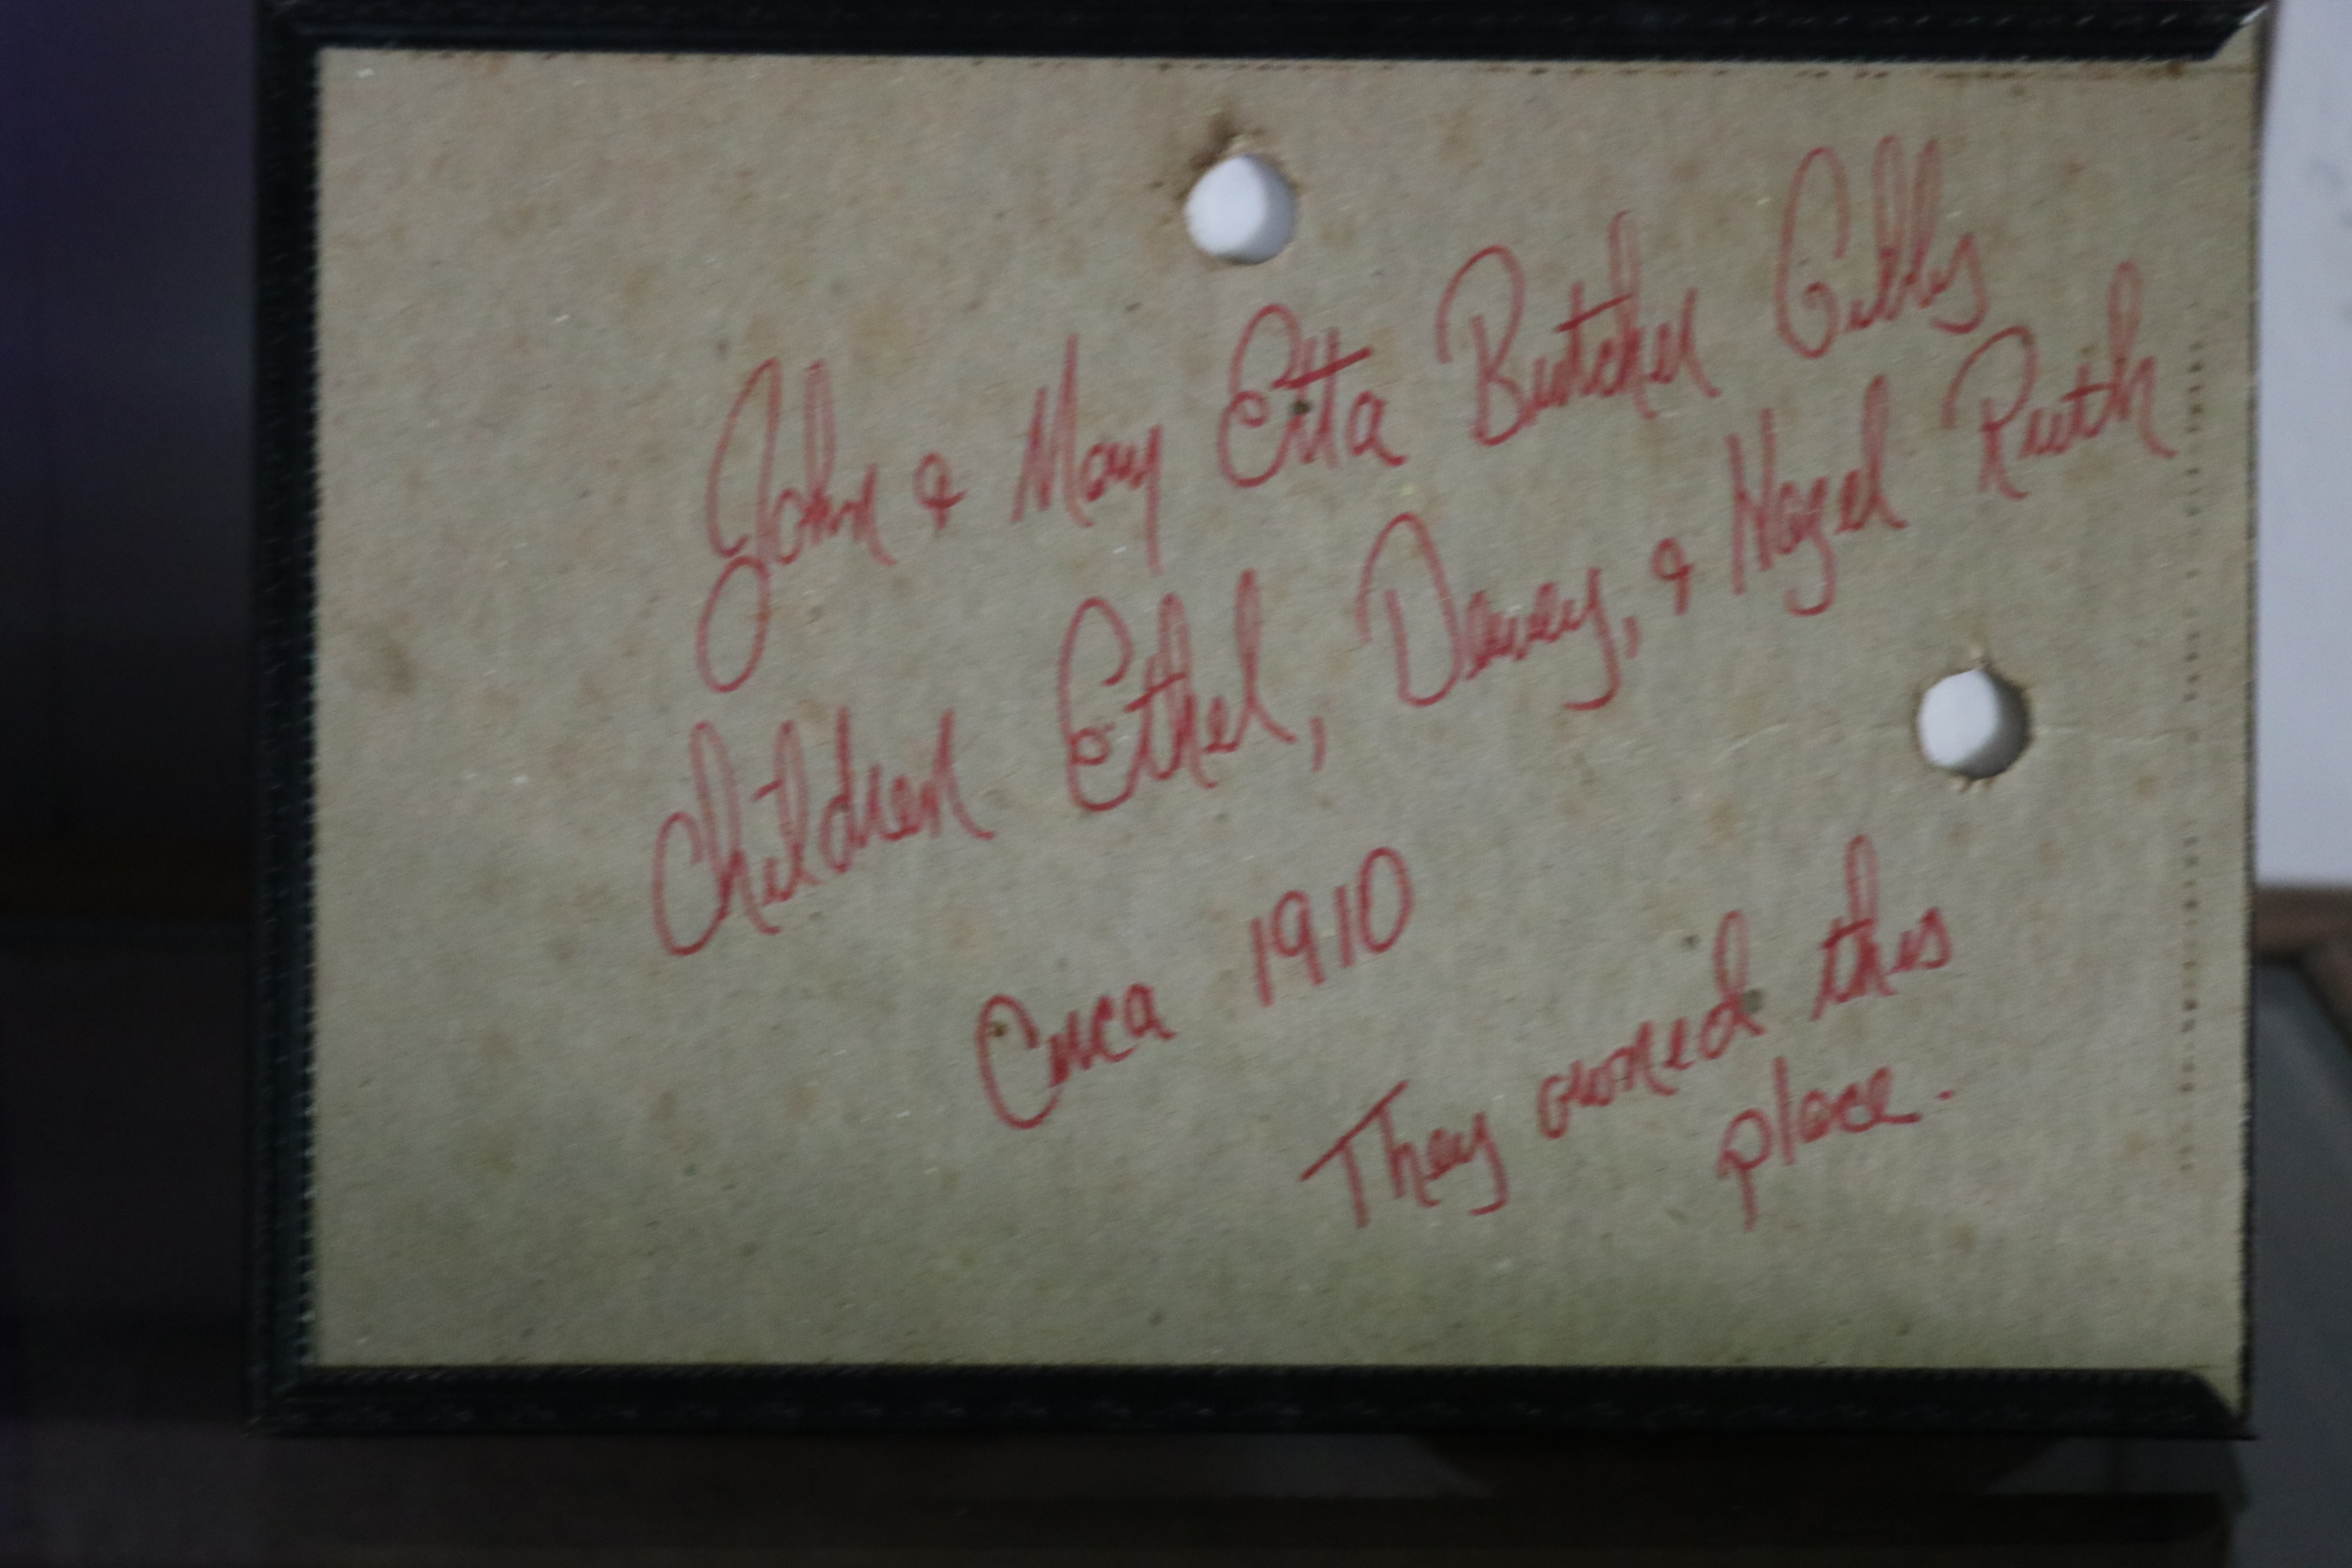 John & Mary Etta Butcher Gibbs
Children Ethel, Dewey, & Hazel Ruth
Circa 1910
They owned this
place.